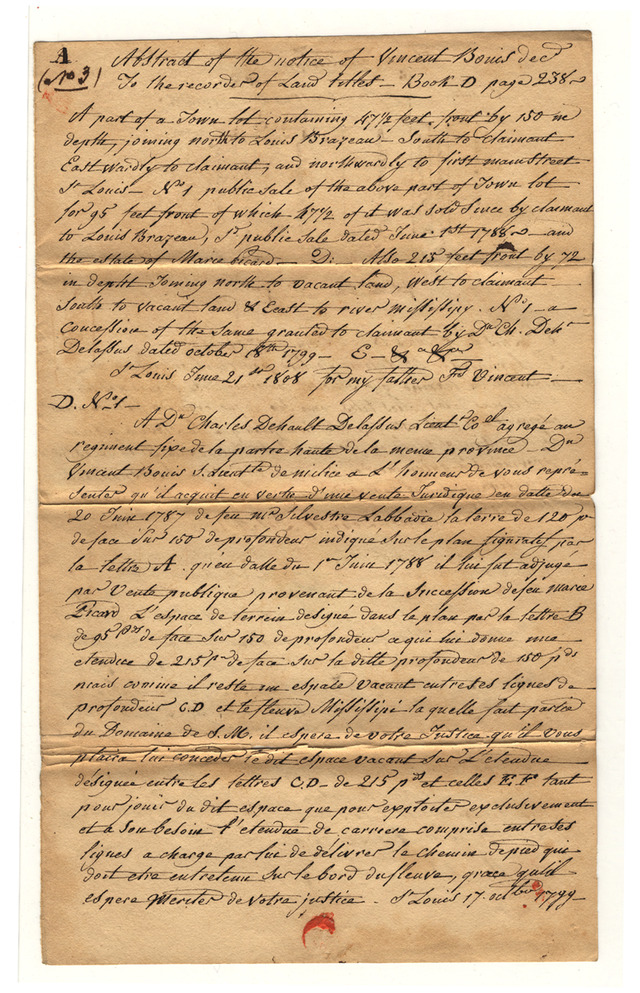 A
(No 3)
Abstract of the notice of Vincent Bouis decd
To the recorder of Land titles – Book D page 238
A part of a Town lot containing 47½ feet front by 150 in
depth, joining north to Louis Brazeau – South to claimant
Eastwardly to claimant, and northwardly to first main street
St Louis – No 1 public sale of the above part of Town lot
for 95 feet front of which 47½ of it was sold since by claimant
to Louis Brazeau, Sd public sale dated June 1st 1788 – and
the estate of Marie Picard – D: Also 215 feet front by 72
in depth Joining north to vacant land, West to claimant
South to vacant land & East to river Missisipy. No 1 – a
concession of the same granted to claimant by Dn Ch. Deht
Delassus dated october 18th 1799 – E – & a &
St Louis June 21st 1808 for my father Frs Vincent
D. No 1 –
A Dn Charles Dehault Delassus Lieut Col agregé au
regiment fixe de la partie haute de la meme province – Dn
Vincent Bouis S. Lieut de milice a L'honneur de vous repré-
senter qu'il acquit en vertu d'une vente Juridique en datte du
20 Juin 1787 de feu mr Silvestre Labbadie la terre de 120 ps
de face sur 150 de profondeur indiqué sur le plan figuratif par
la lettre A. qu'en datte du 1er Juin 1788 il lui fut adjugé
par Vente publique provenant de la Succession de feu marie
Picard L'espace de terrein designé dans le plan par la lettre B
de 95 pds de face sur 150 de profondeur a qui lui donne une
etendue de 215 ps de face sur la ditte profondeur de 150 pds
mais comme il reste un espace vacant entre ses lignes de
profondeur C.D et le fleuve Missisipi laquelle fait partie
du Domaine de S.M. il espere de votre Justice qu'il vous
plaira lui conceder le dit espace vacant sur L'etendue
désignée entre les lettres C.D – de 215 pds et celles E F tant
pour jouir du dit espace que pour exploiter exclusivement
et a son besoin l'etendue de carriere comprise entre ses
lignes a charge par lui de délivrer le chemin de pied que
doit etre entretenu sur le bord du fleuve, grace qu'il
espere meriter de votre justice – St Louis 17. octbre 1799